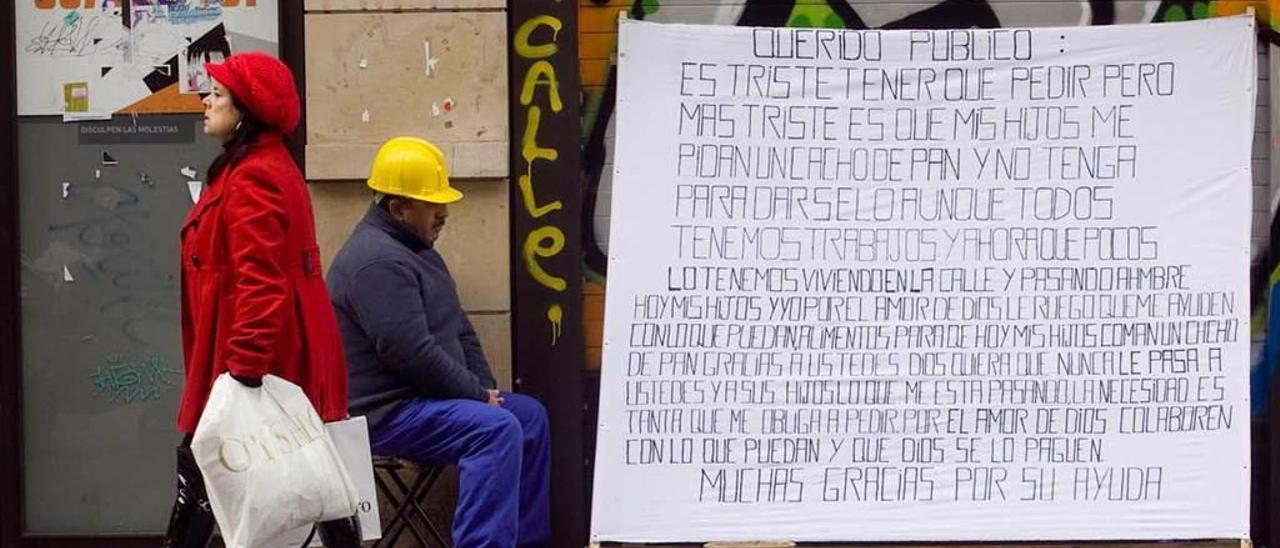 DISCULPEN LAS MOLESTIAS
CALLE
QUERIDO PUBLICO :
ES TRISTE TENER QUE PEDIR PERO
MAS TRISTE ES QUE MIS HIJOS ME
PIDAN UN CACHO DE PAN Y NO TENGA
PARA DARSELO AUNQUE TODOS
TENEMOS TRABAJOS Y AHORA QUE POCOS
LO TENEMOS VIVIENDO EN LA CALLE Y PASANDO AHMBRE
HOY MIS HIJOS Y YO POR EL AMOR DE DIOS LE RUEGO QUE ME AYUDEN
CON LO QUE PUEDAN, ALIMENTOS PARA QE HOY MIS HIJOS COMAN UN CACHO
DE PAN GRACIAS A USTEDES DIOS QUIERA QUE NUNCA LE PASA A
USTEDES Y A SUS HIJOS LO QUE ME ESTA PASANDO, LA NECESIDAD ES
TANTA QUE ME OBLIGA A PEDIR POR EL AMOR DE DIOS COLABOREN
CON LO QUE PUEDAN Y QUE DIOS SE LO PAGUEN.
MUCHAS GRACIAS POR SU AYUDA